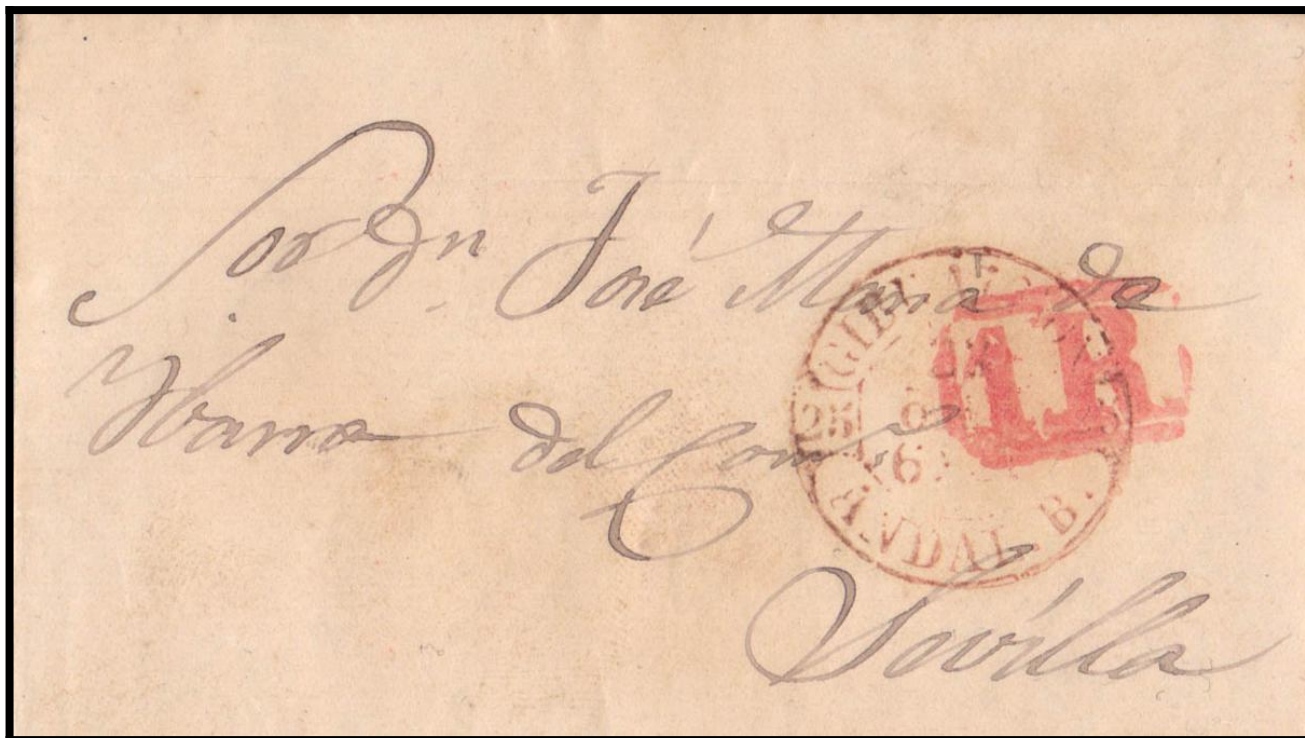 Sor Dn José María de
Ybarra del Comº
Sevilla
1R
28
6
ANDAL. B.